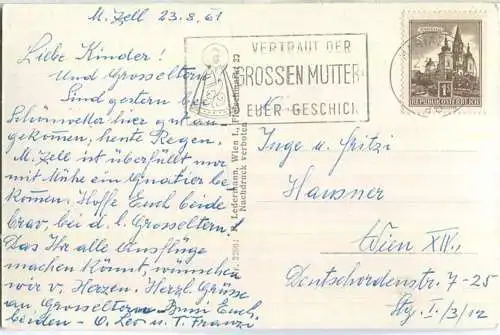 M. Zell 23.8.61
Liebe Kinder!
Und Grosseltern
Sind gestern bei
Schönwetter hier gut an
gekommen, heute Regen.
M. Zell ist überfüllt nur
mit Mühe ein Quatier be
kommen. Hoffe Euch beide
brav, bei d. l. Grosseltern!
Das Ihr alle Ausflüge
machen könnt, wünschen
wir v. Herzen. Herzl. Grüsse
an Grosseltern Bussi Euch
beiden - O. Leo u. T. Franzi
VERTRAUT DER
GROSSEN MUTTER
EUER GESCHICK
REPUBLIK ÖSTERREICH
H. Ledermann, Wien I., Fleischmarkt 22
Nachdruck verboten
Inge u. Fritzi
Hausner
Wien XIV.,
Deutschordenstr. 7-25
Stg. I./3/12